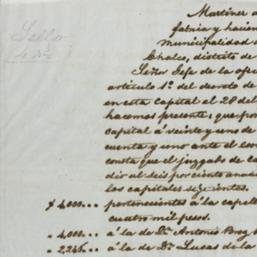 Martinez a
fatria y hacien
municipalidad
Chalco, distrito de
Sello
4o Señor Jefe de la ofic
articulo 1o. del decreto de
en esta capital el 28 del
hacemos presente: que por
capital á veinte y uno de
cuenta y uno ante el
consta que el juzgado de ca
dir al seis por ciento anua
los capitales sigzientes.
$ 4,000... pertenecientes á la capella
cuatro mil pesos.
" 4,000... á la de Dn. Antonio
" 2,246... á la de Dn. Lucas de la